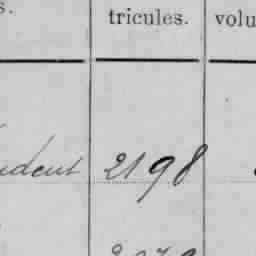 s.
tricules.
volu
udent 2198